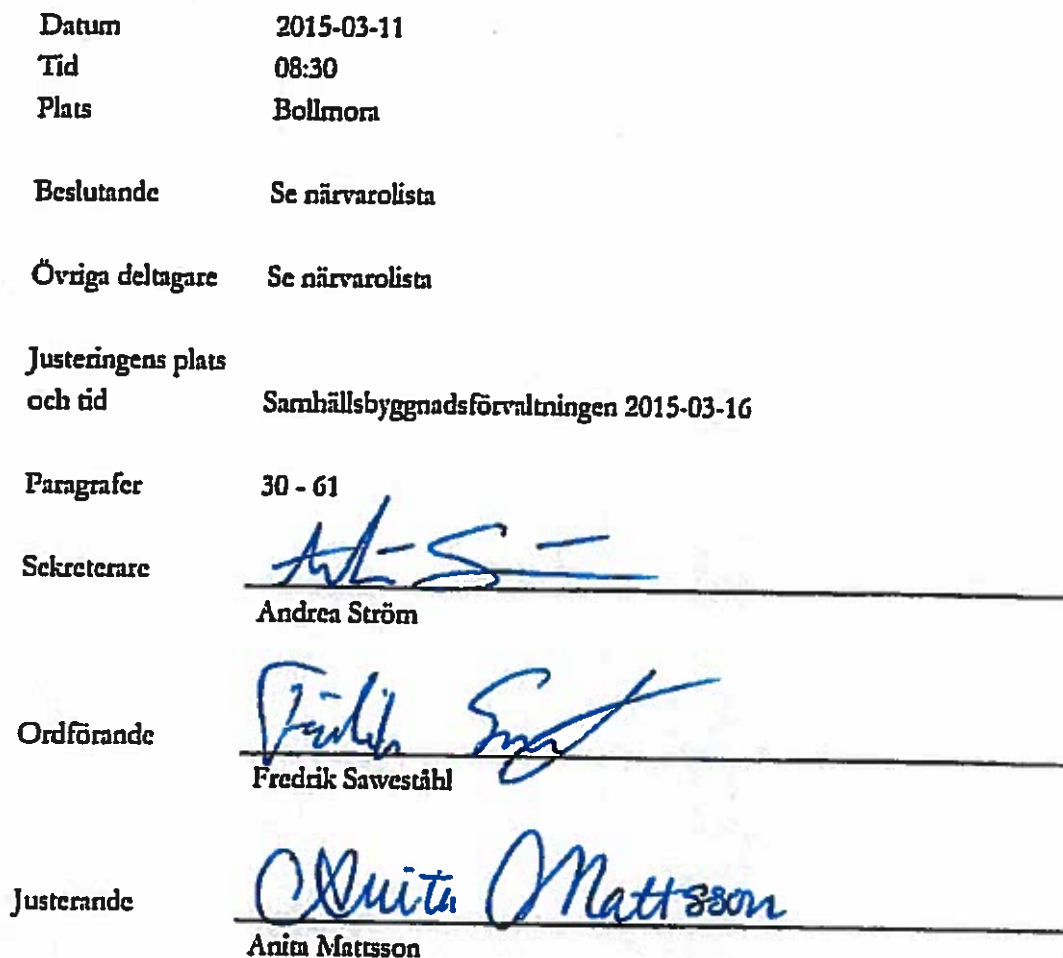 Datum 2015-03-11
Tid 08:30
Plats Bollmora
Beslutande Se närvarolista
Övriga deltagare Se närvarolista
Justeringens plats
och tid Samhällsbyggnadsförvaltningen 2015-03-16
Paragrafer 30 - 61
Sekreterare
Andrea Ström
Ordförande
Fredrik Saweståhl
Justerande Anita Mattsson
Anita Mattsson